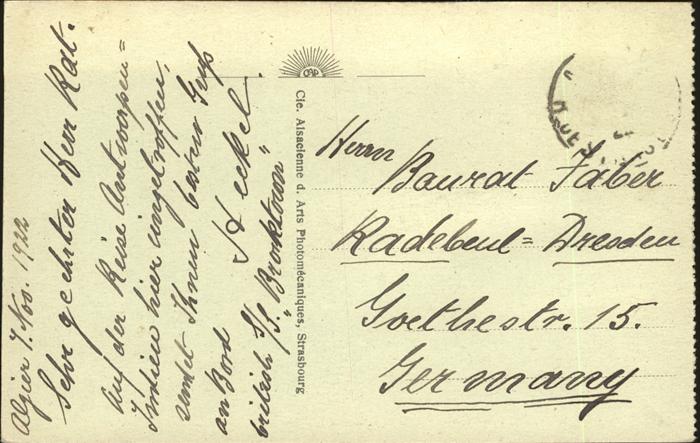 Algier 7. Nov. 1922
Sehr geehrter Herr Rat.
Auf der Reise Antwerpen=
Indien hier eingetroffen,
sendet Ihnen besten Gruß
an Bord Heckel.
british S/S. „Brocktown"
CAP
Cie. Alsacienne d. Arts Photomécaniques, Strasbourg
Herrn
Baurat Faber
Radebeul=Dresden
Goethestr. 15.
Germany